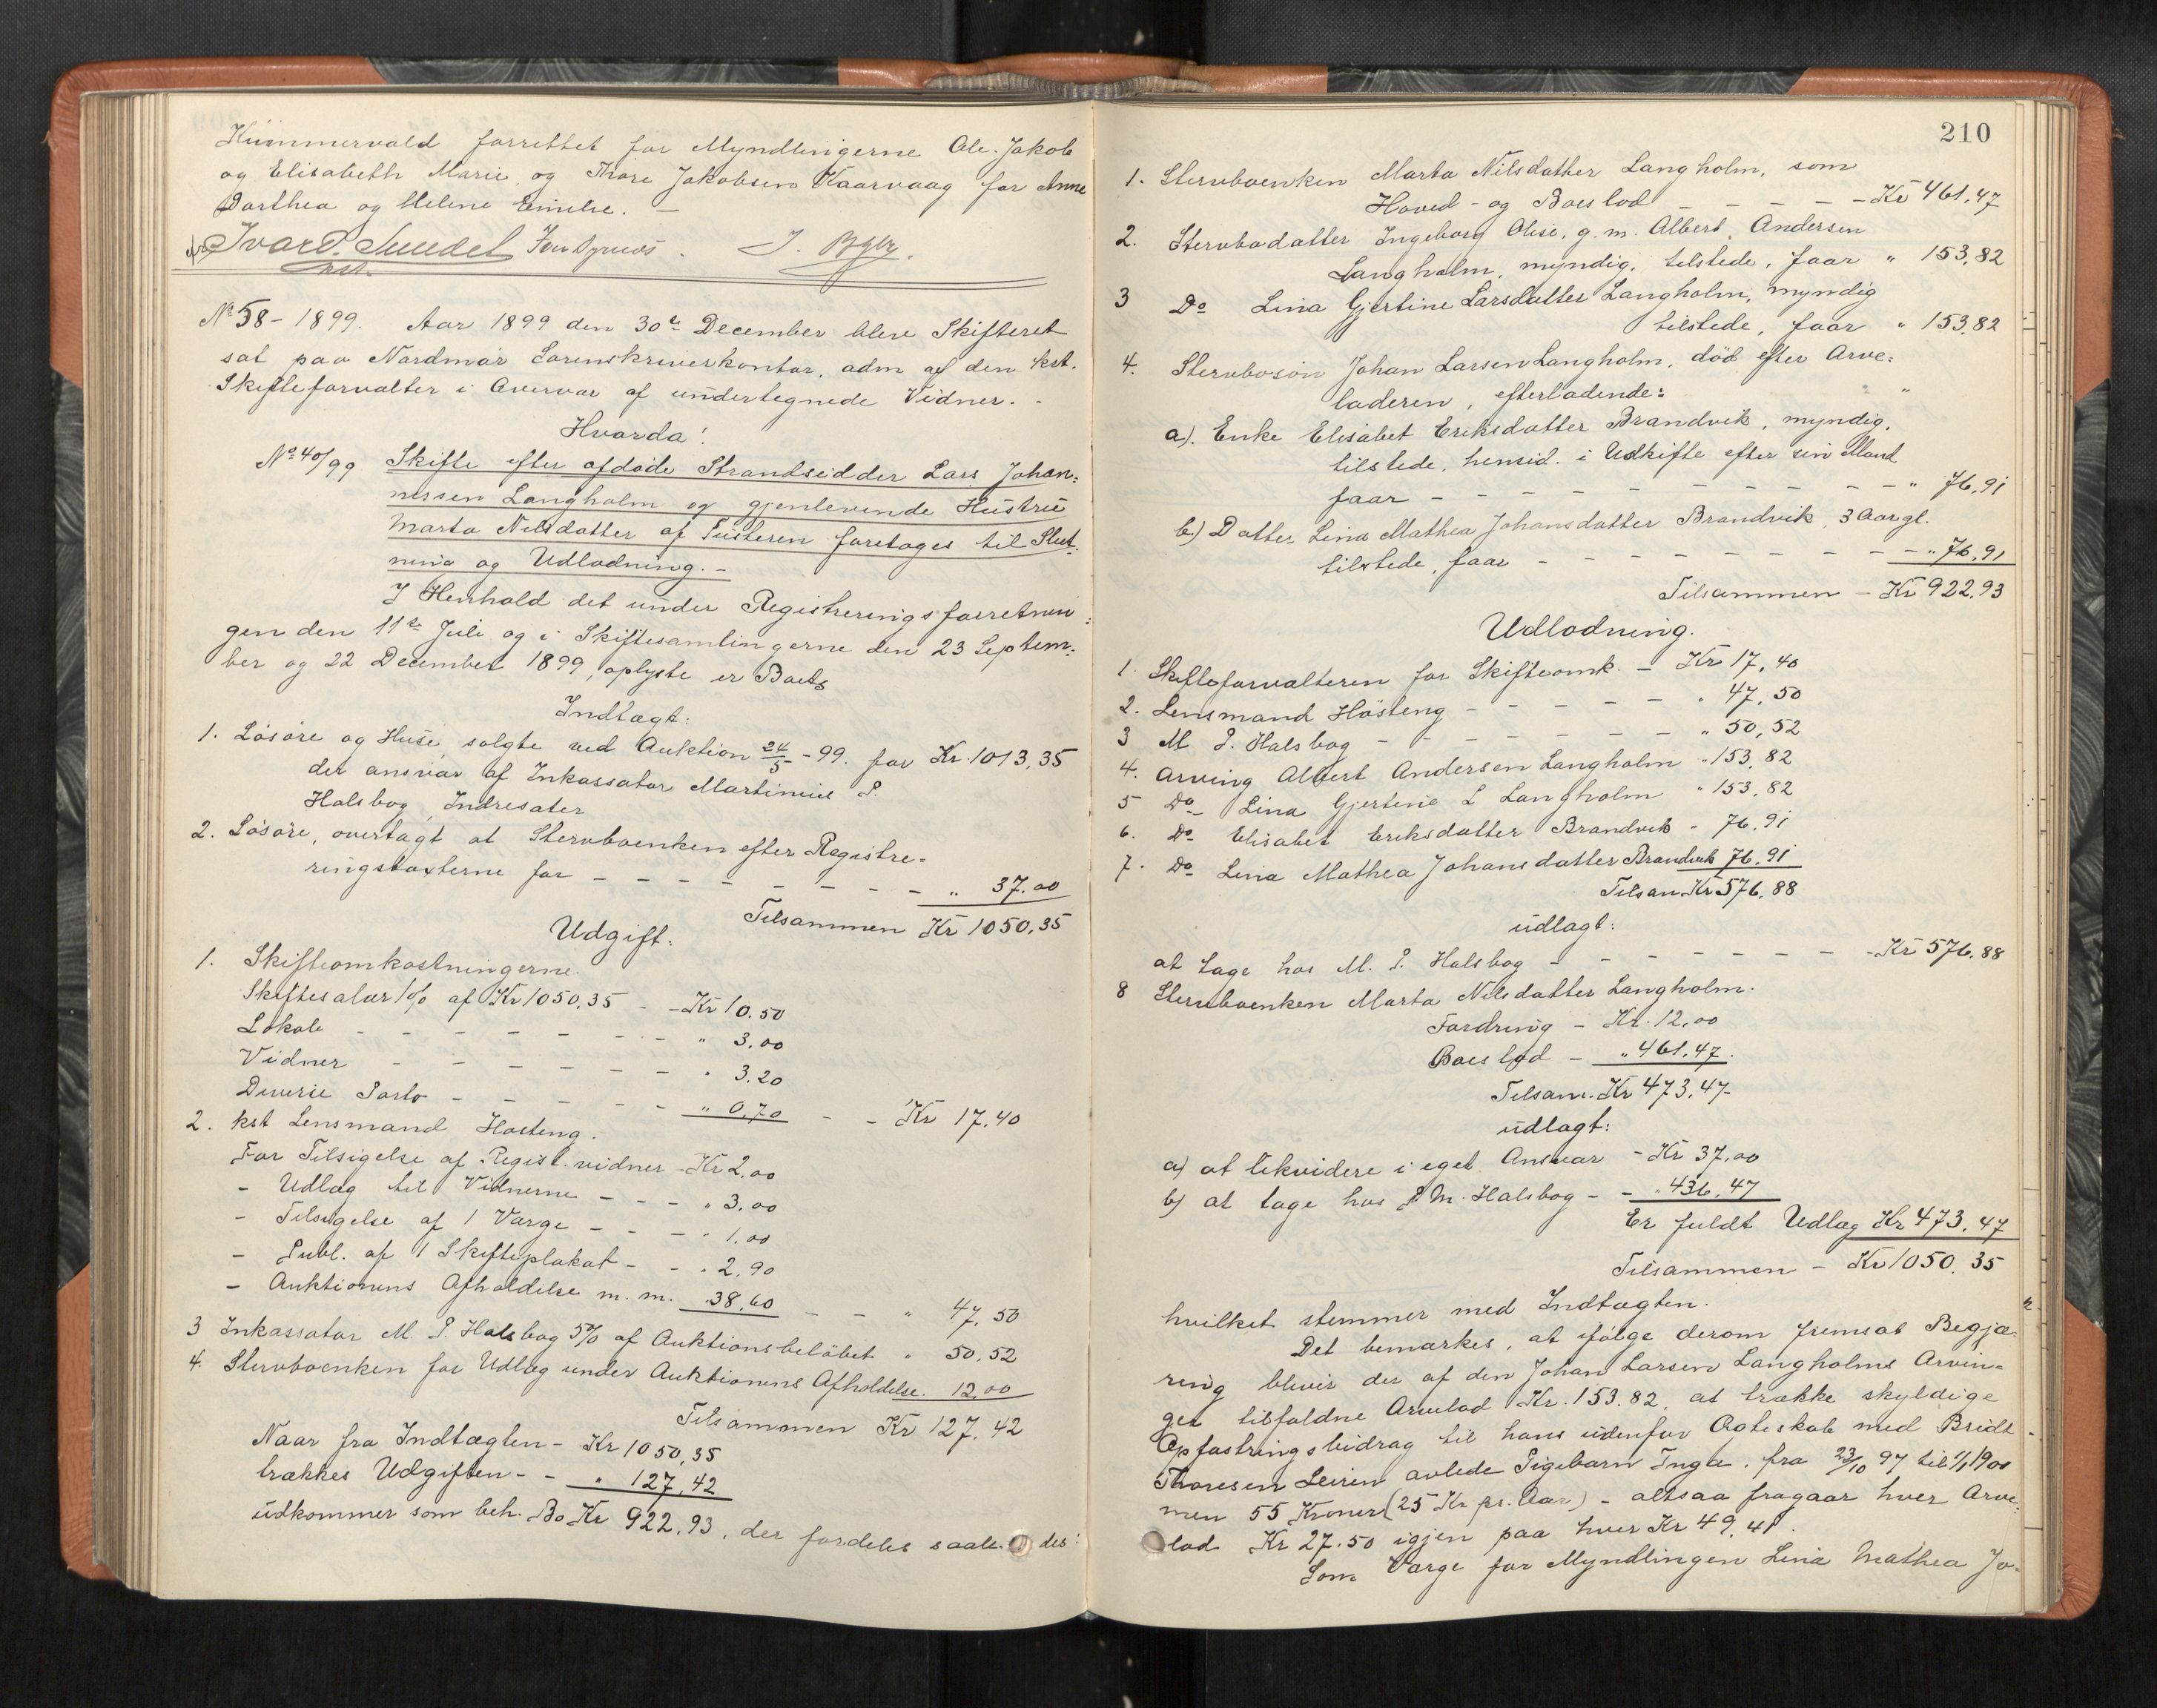 Kummervold forrettet for Myndlingerne Ole Jakob
og Elisabeth Marie og Thore Jakobsen Kaarvaag for Anne
Dorthea og Helene Emelie. —
Ivar P. Sundet
kst.
J. Bgbr.
No 58 - 1899. Aar 1899 den 30te December blev Skifteret
sat paa Nordmør Sorenskriverkontor, adm af den kst.
Skifteforvalter i Overvær af undertegnede Vidner. -
Hvorda!
No 40/99 Skifte efter afdøde Strandsidder Lars Johan=
nessen Langholm og gjenlevende Hustru
Marta Nilsdatter af Tusteren foretages til Slut=
ning og Udlodning. -
I Henhold det under Registreringsforretnin=
gen den 11te Juli og i Skiftesamlingerne den 23 Septem=
ber og 22 December 1899, oplyste er Boets
Indtægt:
1. Løsøre og Huse, solgte ved Auktion 24/5 - 99. for Kr. 1013,35
der ansvar af Inkassator Martinus P.
Halsbog, Indresæter
2. Løsøre, overtagt at Stervboenken efter Registre=
ringstaxterne for - - - - - - - - - " 37.00
Tilsammen Kr 1050,35
Udgift:
1. Skifteomkostningerne.
Skiftesalær 1% af Kr 1050,35 - - Kr 10.50
Lokale - - - - - - - " 3.00
Vidner - - - - - - - " 3.20
Diverse Porto - - - - - " 0,70 - - Kr 17.40
2. kst Lensmand Høsteng.
For Tilsigelse af Regist. vidner - Kr 2,00
- Udlæg til Vidnerne - - - " 3.00
- Tilsigelse af 1 Værge - - - " 1.00
- Publ. af 1 Skifteplakat - - " 2.90
- Auktionens Afholdelse m. m. " 38,60 - - " 47,50
3 Inkassator M. P. Halsbog 5% af Auktionsbeløbet " 50,52
4. Stervboenken for Udlæg under Auktionens Afholdelse. 12,00
Tilsammen Kr 127,42
Naar fra Indtægten - Kr 1050,35
trækkes Udgiften - - " 127,42
udkommer som beh. Bo Kr 922,93, der fordeles saale- des:
210
1. Stervboenken Marta Nilsdatter Langholm, som
Hoved- og Boeslod - - - - - Kr 461,47
2. Stervbodatter Ingeborg Olise, g. m. Albert Andersen
Langholm, myndig, tilstede, faar " 153,82
3 Do Lina Gjertine Larsdatter Langholm, myndig
tilstede, faar " 153,82
4. Stervbosøn Johan Larsen Langholm, død efter Arve=
laderen, efterladende: "
a). Enke Elisabet Eriksdatter Brandvik, myndig,
tilstede, hensid. i Uskifte efter sin Mand
faar - - - - - - - - - - - " 76,91
b.) Datter Lina Mathea Johansdatter Brandvik, 3 Aar gl.
tilstede, faar - - - - - - - - - " 76,91
Tilsammen - Kr 922,93
Udlodning.
1. Skifteforvalteren for Skifteomk. - Kr 17,40
2. Lensmand Høsteng - - - - - " 47,50
3 M P. Halsbog - - - - - - - " 50,52
4. Arving Albert Andersen Langholm " 153,82
5 Do Lina Gjertine L Langholm " 153,82
6. Do Elisabet Eriksdatter Brandvik " 76,91
7. Do Lina Mathea Johansdatter Brandvik 76,91
Tilsam Kr 576,88
udlagt:
at tage hos M. P. Halsbog - - - - - - - Kr 576,88
8 Stervboenken Marta Nilsdatter Langholm.
Fordring - Kr. 12,00
Boeslod - " 461,47.
Tilsam. Kr 473,47
udlagt:
a) at likvidere i eget Ansvar - Kr 37,00
b) at tage hos P. M. Halsbog - - " 436,47
Er fuldt Udlæg Kr 473,47
Tilsammen - Kr 1050,35
hvilket stemmer med Indtægten.
Det bemærkes, at ifølge derom fremsat Begjæ=
ring bliver der af den Johan Larsen Langholms Arvin=
ger tilfaldne Arvelod Kr. 153.82, at trække skyldige
Opfostringsbidrag til hans udenfor Ægteskab med Bridt
Thoresen Leiren avlede Pigebarn Inga, fra 23/10 97 til 1/1 1900
men 55 Kroner (25 Kr pr. Aar) - altsaa fragaar hver Arve=
lod Kr 27.50 igjen paa hver Kr 49,41.
Som Værge for Myndlingen Lina Mathea Jo-